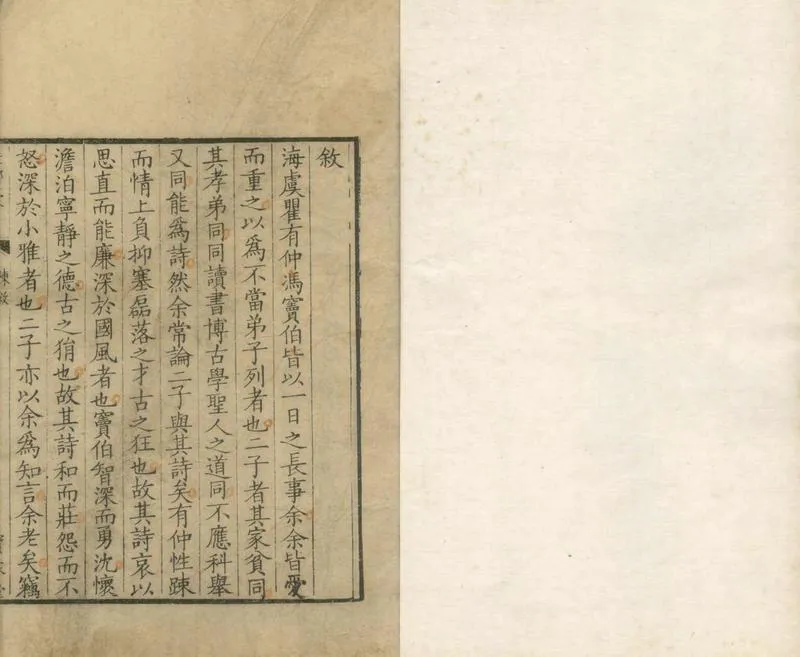 敘
海虞瞿有仲馮竇伯皆以一日之長事余余皆愛
而重之以爲不當弟子列者也二子者其家貧同
其孝弟同同讀書博古學聖人之道同不應科舉
又同能爲詩然余常論二子與其詩矣有仲性踈
而情上負抑塞磊落之才古之狂也故其詩哀以
思直而能廉深於國風者也竇伯智深而勇沈懷
澹泊寧靜之德古之狷也故其詩和而莊怨而不
怒深於小雅者也二子亦以余爲知言余老矣竊